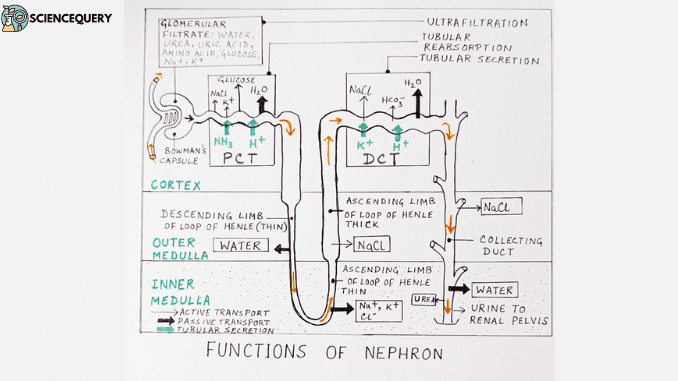 SCIENCEQUERY
GLOMERULAR
FILTRATE: WATER,
UREA, URIC ACID,
AMINO ACID, GLUCOSE,
Na+, K+
ULTRAFILTRATION
TUBULAR
REABSORPTION
TUBULAR SECRETION
GLUCOSE
NaCl
K+
H2O
NH3
H+
PCT
BOWMAN'S
CAPSULE
NaCl
HCO3-
H2O
K+
H+
DCT
CORTEX
DESCENDING LIMB
OF LOOP OF HENLE (THIN)
ASCENDING LIMB
OF LOOP OF HENLE
THICK
NaCl
OUTER
MEDULLA
WATER
NaCl
COLLECTING
DUCT
INNER
MEDULLA
ASCENDING LIMB
OF LOOP OF HENLE
THIN
Na+, K+
Cl-
UREA
WATER
URINE TO
RENAL PELVIS
ACTIVE TRANSPORT
PASSIVE TRANSPORT
TUBULAR SECRETION
FUNCTIONS OF NEPHRON